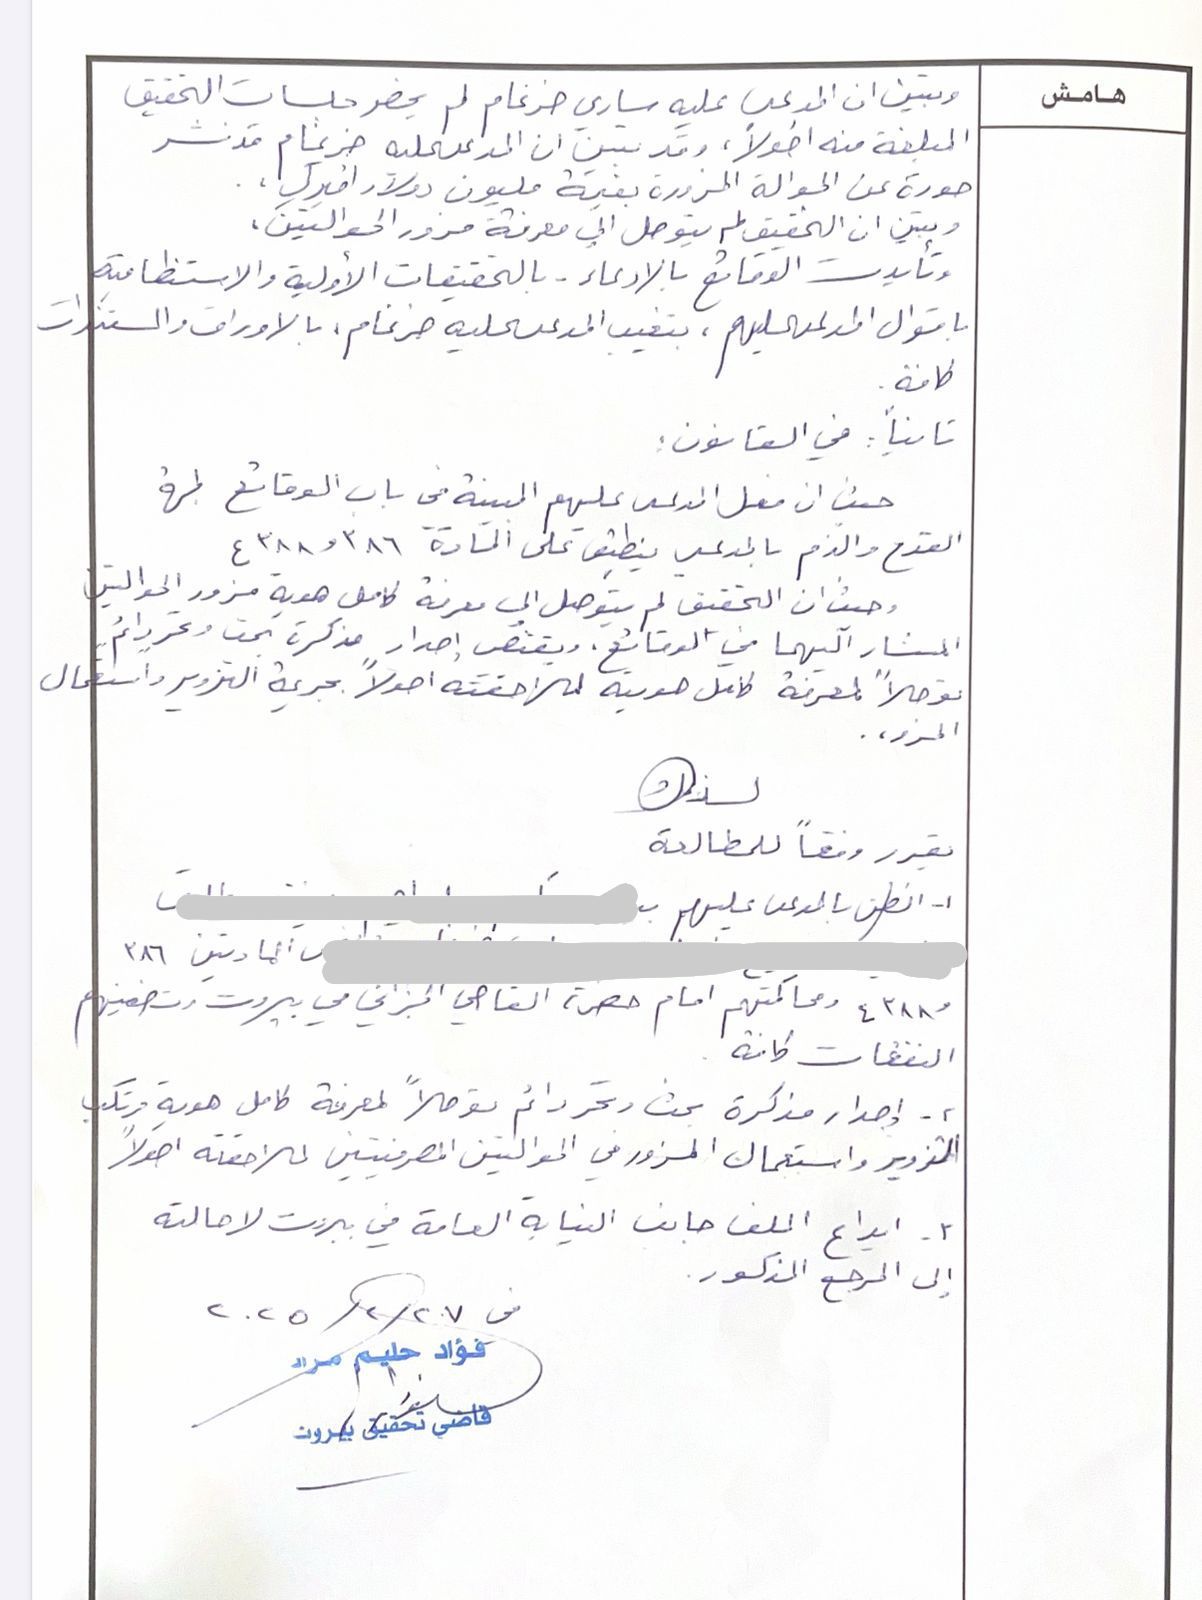 هامش
وتبين ان المدعى عليه ساري ضرغام لم يحضر جلسات التحقيق
المبلغة منه اصولاً، وقد تبين ان المدعى عليه ضرغام قد نشر
صورة عن الحوالة المزورة بقيمة مليون دولار اميركي،.
وتبين ان التحقيق لم يتوصل الى معرفة مزور الحوالتين،
وتأيدت الوقائع بالادعاء - بالتحقيقات الأولية والاستنطاقية
باقوال المدعى عليهم، بتغيب المدعى عليه ضرغام، بالاوراق والمستندات
كافة.
ثانياً: في القانون:
حيث ان فعل المدعى عليهم المبينة في باب الوقائع لجهة
القدح والذم بالمدعي ينطبق على المادة ٣٨٦ و ٣٨٨ ع
وحيث ان التحقيق لم يتوصل الى معرفة كامل هوية مزور الحوالتين
المشار اليهما في الوقائع، ويقتضي إصدار مذكرة بحث وتحر دائم
توصلاً لمعرفة كامل هويته لملاحقته اصولاً بجريمة التزوير واستعمال
المزور،.
لـذلك
نقرر وفقاً للمطالعة
١- الظن بالمدعى عليهم
المادتين ٣٨٦
و ٣٨٨ ع ومحاكمتهم امام حضرة القاضي الجزائي في بيروت وتضمينهم
النفقات كافة.
٢- إصدار مذكرة بحث وتحر دائم توصلاً لمعرفة كامل هوية مرتكب
التزوير واستعمال المزور في الحوالتين المصرفيتين لملاحقته اصولاً
٣- ايداع الملف جانب النيابة العامة في بيروت لاحالته
إلى المرجع المذكور.
في ٢٠٢٥/٢/٢٠٧
فؤاد حليم مراد
قاضي تحقيق بيروت